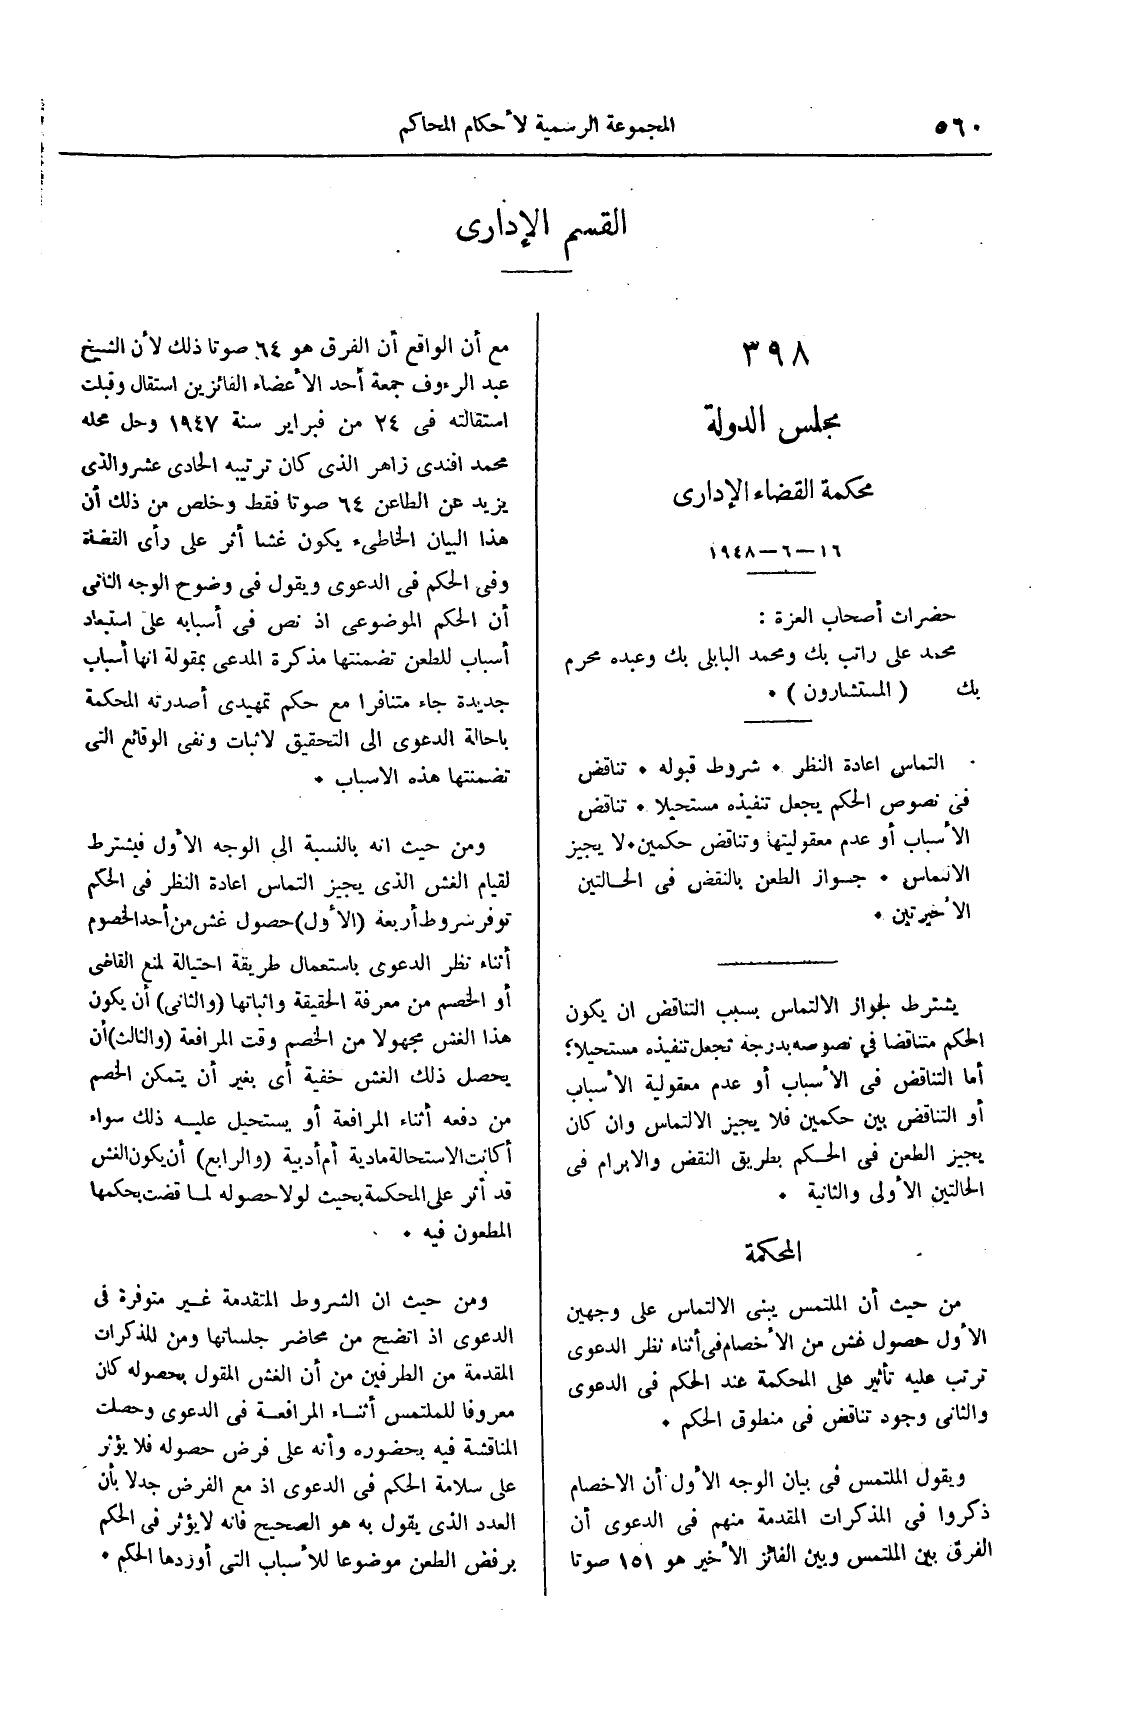 ٥٦٠
المجموعة الرسمية لأحكام المحاكم
القسم الإدارى
٣٩٨
مجلس الدولة
محكمة القضاء الإدارى
١٦-٦-١٩٤٨
حضرات أصحاب العزة :
محمد على راتب بك ومحمد البابلى بك وعبده محرم
بك ( المستشارون ) .
التماس اعادة النظر . شروط قبوله . تناقض
فى نصوص الحكم يجعل تنفيذه مستحيلا . تناقض
الأسباب أو عدم معقوليتها وتناقض حكمين . لا يجيز
الالتماس . جواز الطعن بالنقض فى الحالتين
الأخيرتين .
يشترط لجواز الالتماس بسبب التناقض ان يكون
الحكم متناقضا في نصوصه بدرجة تجعل تنفيذه مستحيلا؛
أما التناقض فى الأسباب أو عدم معقولية الأسباب
أو التناقض بين حكمين فلا يجيز الالتماس وان كان
يجيز الطعن فى الحكم بطريق النقض والابرام فى
الحالتين الأولى والثانية .
المحكمة
من حيث أن الملتمس يبنى الالتماس على وجهين
الأول حصول غش من الأخصام فى أثناء نظر الدعوى
ترتب عليه تأثير على المحكمة عند الحكم فى الدعوى
والثانى وجود تناقض فى منطوق الحكم .
ويقول الملتمس فى بيان الوجه الأول أن الاخصام
ذكروا فى المذكرات المقدمة منهم فى الدعوى أن
الفرق بين الملتمس وبين الفائز الأخير هو ١٥١ صوتا
مع أن الواقع أن الفرق هو ٦٤ صوتا ذلك لأن الشيخ
عبد الرءوف جمعة أحد الأعضاء الفائزين استقال وقبلت
استقالته فى ٢٤ من فبراير سنة ١٩٤٧ وحل محله
محمد افندى زاهر الذى كان ترتيبه الحادى عشر والذى
يزيد عن الطاعن ٦٤ صوتا فقط وخلص من ذلك أن
هذا البيان الخاطىء يكون غشا أثر على رأى القضاة
وفى الحكم فى الدعوى ويقول فى وضوح الوجه الثانى
أن الحكم الموضوعى اذ نص فى أسبابه على استبعاد
أسباب للطعن تضمنتها مذكرة المدعى بمقولة انها أسباب
جديدة جاء متنافرا مع حكم تمهيدى أصدرته المحكمة
باحالة الدعوى الى التحقيق لاثبات ونفى الوقائع التى
تضمنتها هذه الاسباب .
ومن حيث انه بالنسبة الى الوجه الأول فيشترط
لقيام الغش الذى يجيز التماس اعادة النظر فى الحكم
توفر شروط أربعة (الأول) حصول غش من أحد الخصوم
أثناء نظر الدعوى باستعمال طريقة احتيالة لمنع القاضى
أو الخصم من معرفة الحقيقة واثباتها (والثانى) أن يكون
هذا الغش مجهولا من الخصم وقت المرافعة (والثالث) أن
يحصل ذلك الغش خفية أى بغير أن يتمكن الخصم
من دفعه أثناء المرافعة أو يستحيل عليه ذلك سواء
أكانت الاستحالة مادية أم أدبية (والرابع) أن يكون الغش
قد أثر على المحكمة بحيث لولا حصوله لما قضت بحكمها
المطعون فيه .
ومن حيث ان الشروط المتقدمة غير متوفرة فى
الدعوى اذ اتضح من محاضر جلساتها ومن المذكرات
المقدمة من الطرفين من أن الغش المقول بحصوله كان
معروفا للملتمس أثناء المرافعة فى الدعوى وحصلت
المناقشة فيه بحضوره وأنه على فرض حصوله فلا يؤثر
على سلامة الحكم فى الدعوى اذ مع الفرض جدلا بأن
العدد الذى يقول به هو الصحيح فانه لا يؤثر فى الحكم
برفض الطعن موضوعا للأسباب التى أوردها الحكم .